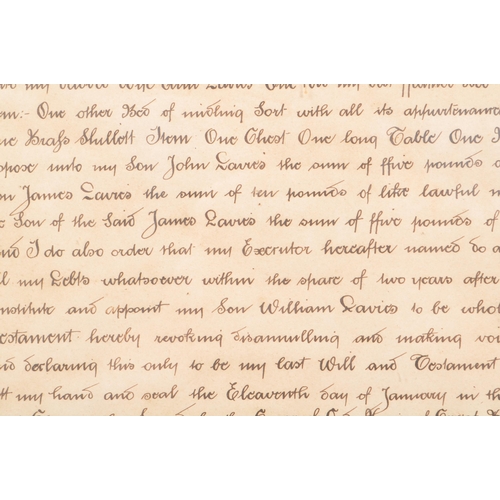 my Wife Ann Davies One
:- One other Bed of midling Sort with all its appurtenance
Brass Skullett Item One Chest One long Table One
ppose unto my Son John Davies the sum of ffive pounds o
on James Davies the sum of ten pounds of like lawful m
e Son of the Said James Davies the sum of ffive pounds of
nd I do also order that my Executor hereafter named do a
ll my Debts whatsoever within the space of two years after
nstitute and appoint my Son William Davies to be whol
estament hereby revoking disannulling and making voi
nd declaring this only to be my last Will and Testament
tt my hand and seal the Eleaventh day of January in th